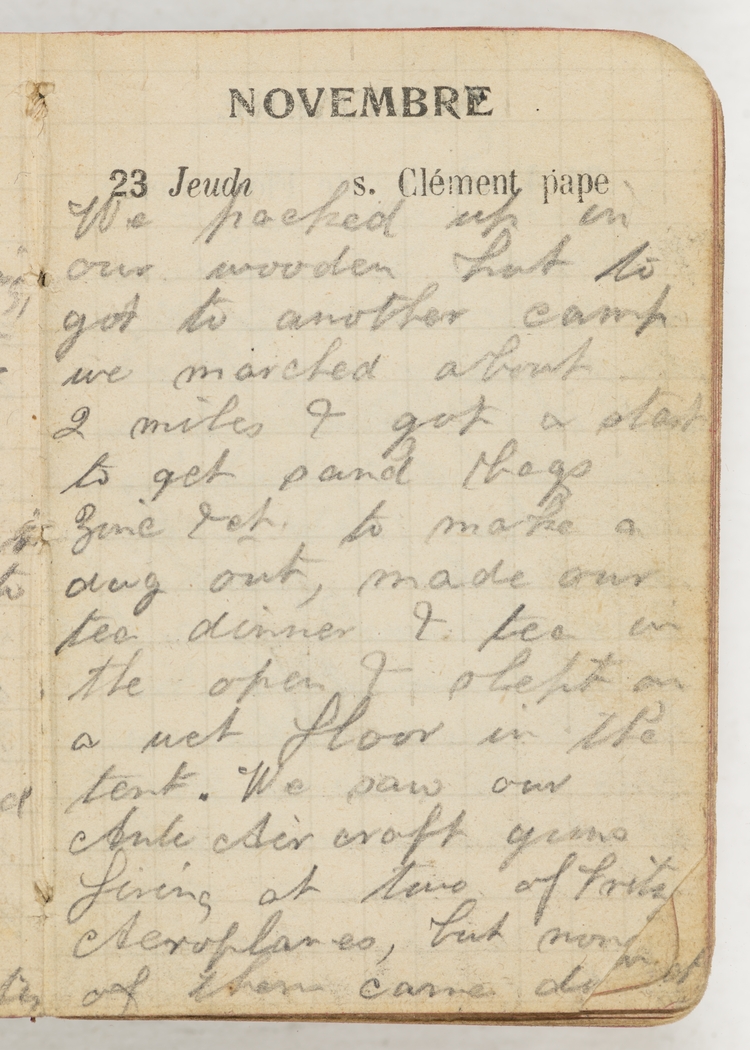 NOVEMBRE
23 Jeudi s. Clément pape
We packed up in
our wooden hut to
got to another camp
we marched about
2 miles & got a start
to get sand bags
Zinc &ct. to make a
dug out, made our
tea dinner &. tea in
the open & slept on
a wet floor in the
tent. We saw our
Anti Air craft guns
firing at two of Fritz
Aeroplanes, but none
of them came